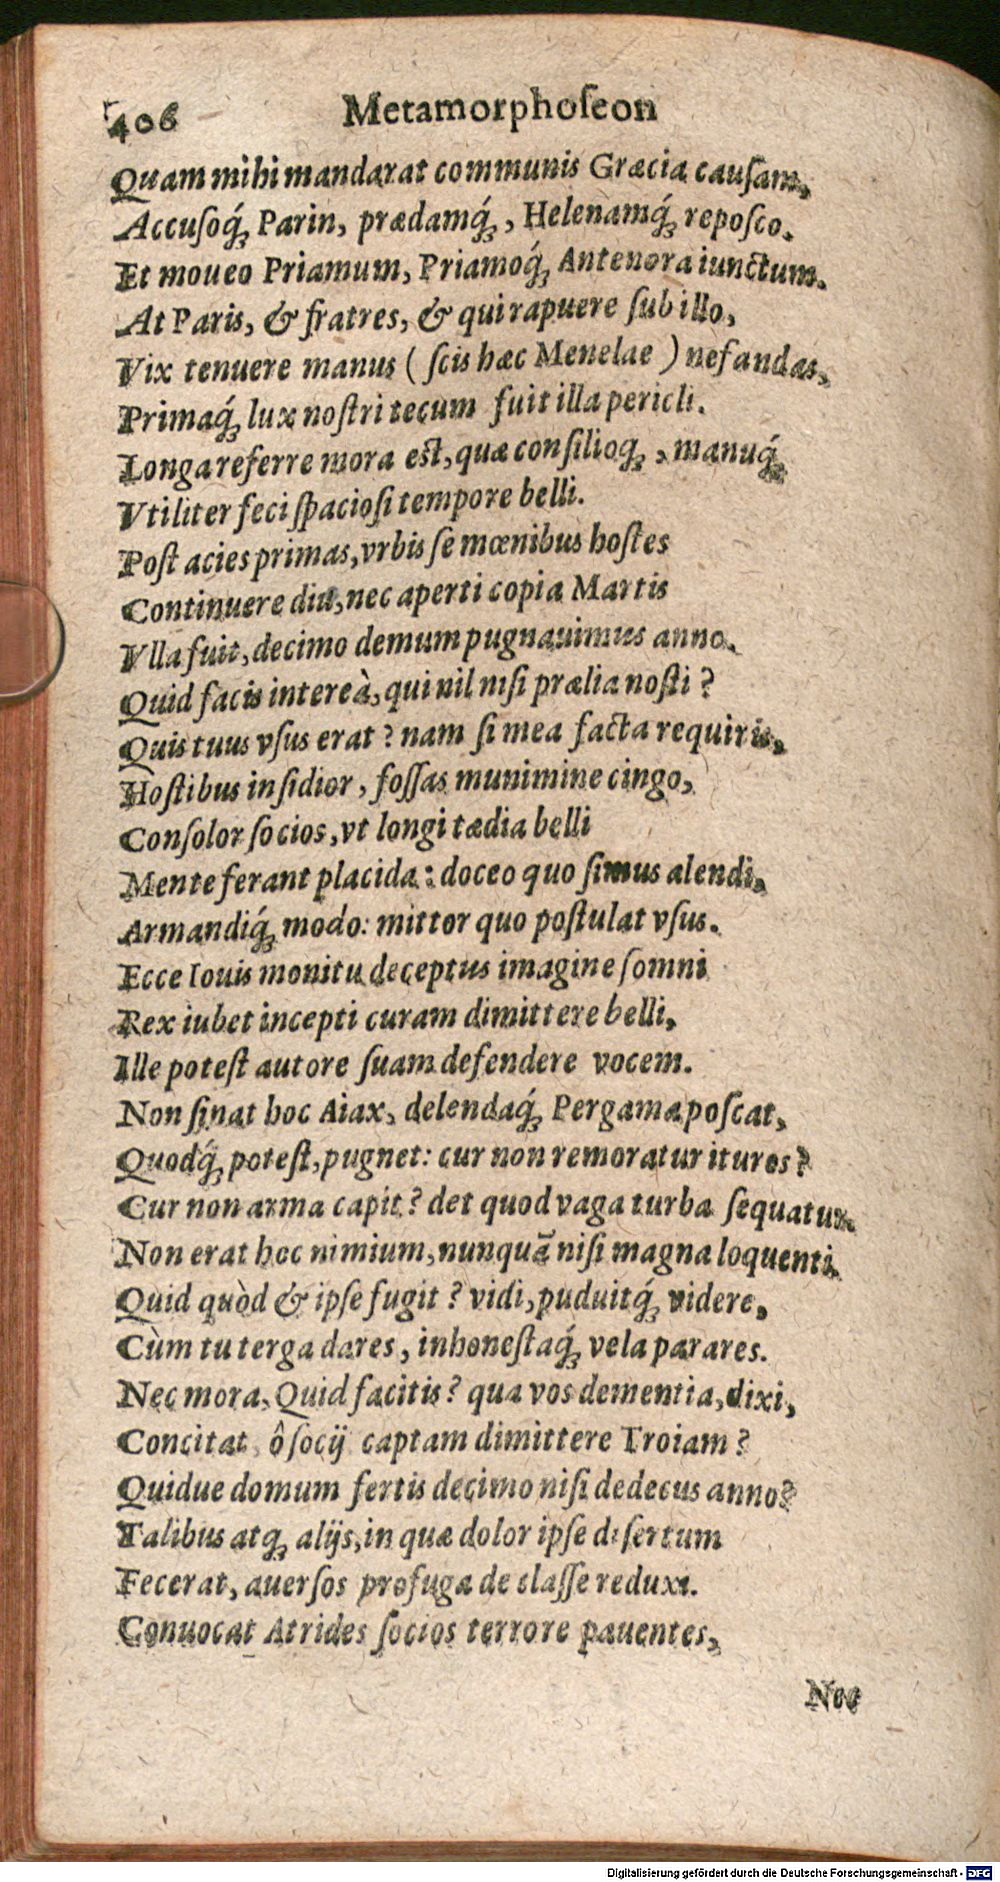 406 Metamorphoſeon
Quam mihi mandarat communis Græcia cauſam,
Accuſoq́; Parin, prædamq́;, Helenamq́; repoſco.
Et moueo Priamum, Priamoq́; Antenora iunctum.
At Paris, & fratres, & qui rapuere ſub illo,
Vix tenuere manus ( ſcis hæc Menelae ) nefandas,
Primaq́; lux noſtri tecum fuit illa pericli.
Longa referre mora eſt, quæ conſilioq;, manuq́;
Vtiliter feci ſpacioſi tempore belli.
Poſt acies primas, vrbis ſe mœnibus hoſtes
Continuere diu, nec aperti copia Martis
Vlla fuit, decimo demum pugnauimus anno.
Quid facis intereà, qui nil niſi prælia noſti ?
Quis tuus vſus erat ? nam ſi mea facta requiris,
Hoſtibus inſidior, foſſas munimine cingo,
Conſolor ſocios, vt longi tædia belli
Mente ferant placida : doceo quo ſimus alendi,
Armandiq́; modo: mittor quo poſtulat vſus.
Ecce Iouis monitu deceptus imagine ſomni
Rex iubet incepti curam dimittere belli,
Ille poteſt autore ſuam defendere vocem.
Non ſinat hoc Aiax, delendaq́; Pergama poſcat,
Quodq́; poteſt, pugnet: cur non remoratur ituros ?
Cur non arma capit ? det quod vaga turba ſequatur.
Non erat hoc nimium, nunquã niſi magna loquenti.
Quid quòd & ipſe fugit ? vidi, puduitq́; videre,
Cùm tu terga dares, inhoneſtaq́; vela parares.
Nec mora, Quid facitis ? qua vos dementia, dixi,
Concitat ô ſocij captam dimittere Troiam ?
Quidue domum fertis decimo niſi dedecus anno?
Talibus atq; alijs, in quæ dolor ipſe diſertum
Fecerat, auerſos profuga de claſſe reduxi.
Conuocat Atrides ſocios terrore pauentes,
Nec
Digitalisierung gefördert durch die Deutsche Forschungsgemeinschaft - DFG